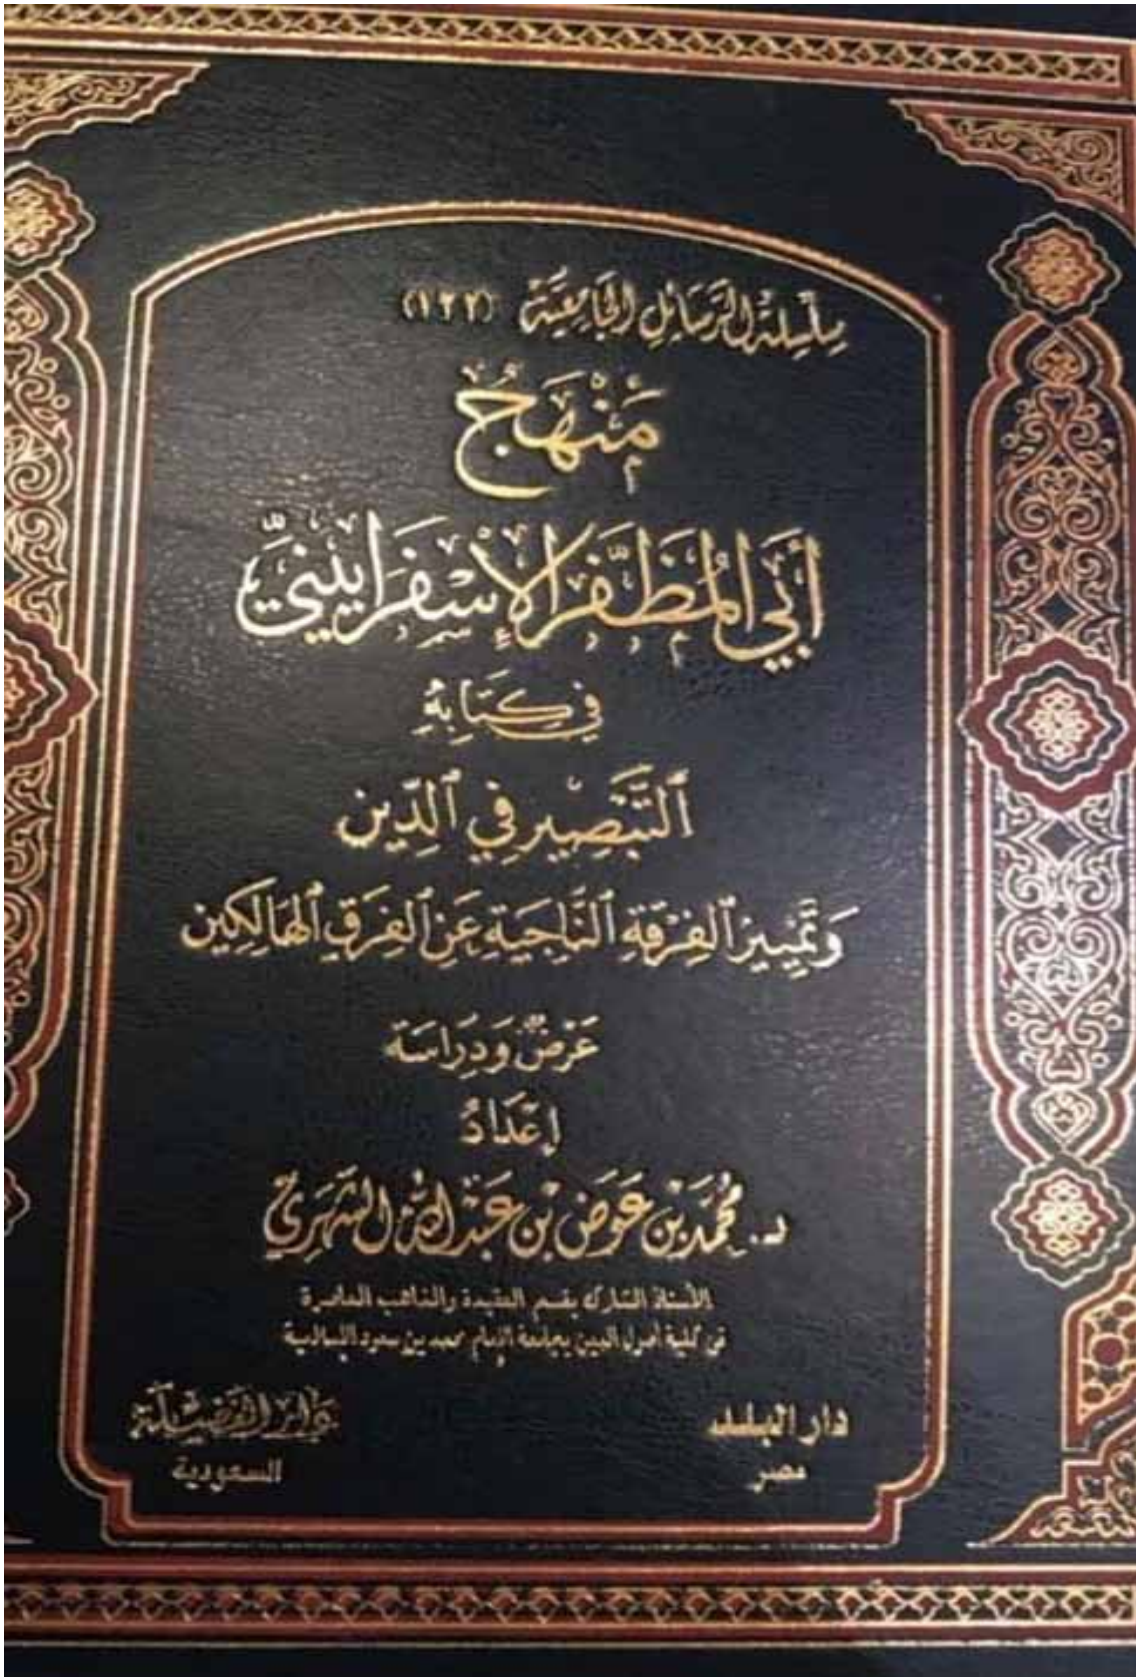 سِلْسِلَةُ الرَّسَائِلِ الجَامِعِيَّةِ (١٢٢)
مَنْهَجُ
أَبِي المُظَفَّرِ الإِسْفَرَايِينِيِّ
فِي كِتَابِهِ
التَّبْصِيرِ فِي الدِّينِ
وَتَمْيِيزِ الفِرْقَةِ النَّاجِيَةِ عَنِ الفِرَقِ الهَالِكِينَ
عَرْضٌ وَدِرَاسَة
إعْدَادُ
د. مُحَمَّد بْن عَوَض بْن عَبْد اللَّه الشَّهْرِي
الأستاذ المشارك بقسم العقيدة والمذاهب المعاصرة
في كلية أصول الدين بجامعة الإمام محمد بن سعود الإسلامية
دار البلد
مصر
دار الفضيلة
السعودية